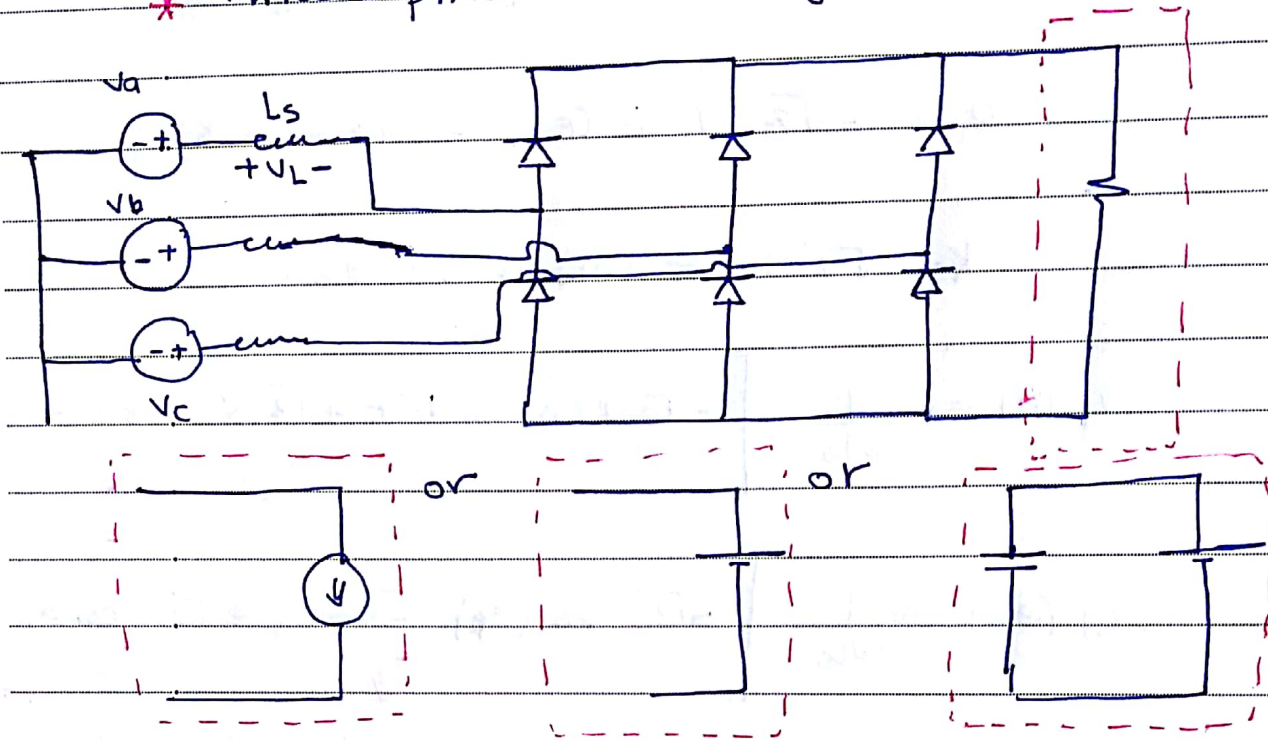 *
Va
Ls
- +
+ VL -
Vb
- +
- +
Vc
or
or